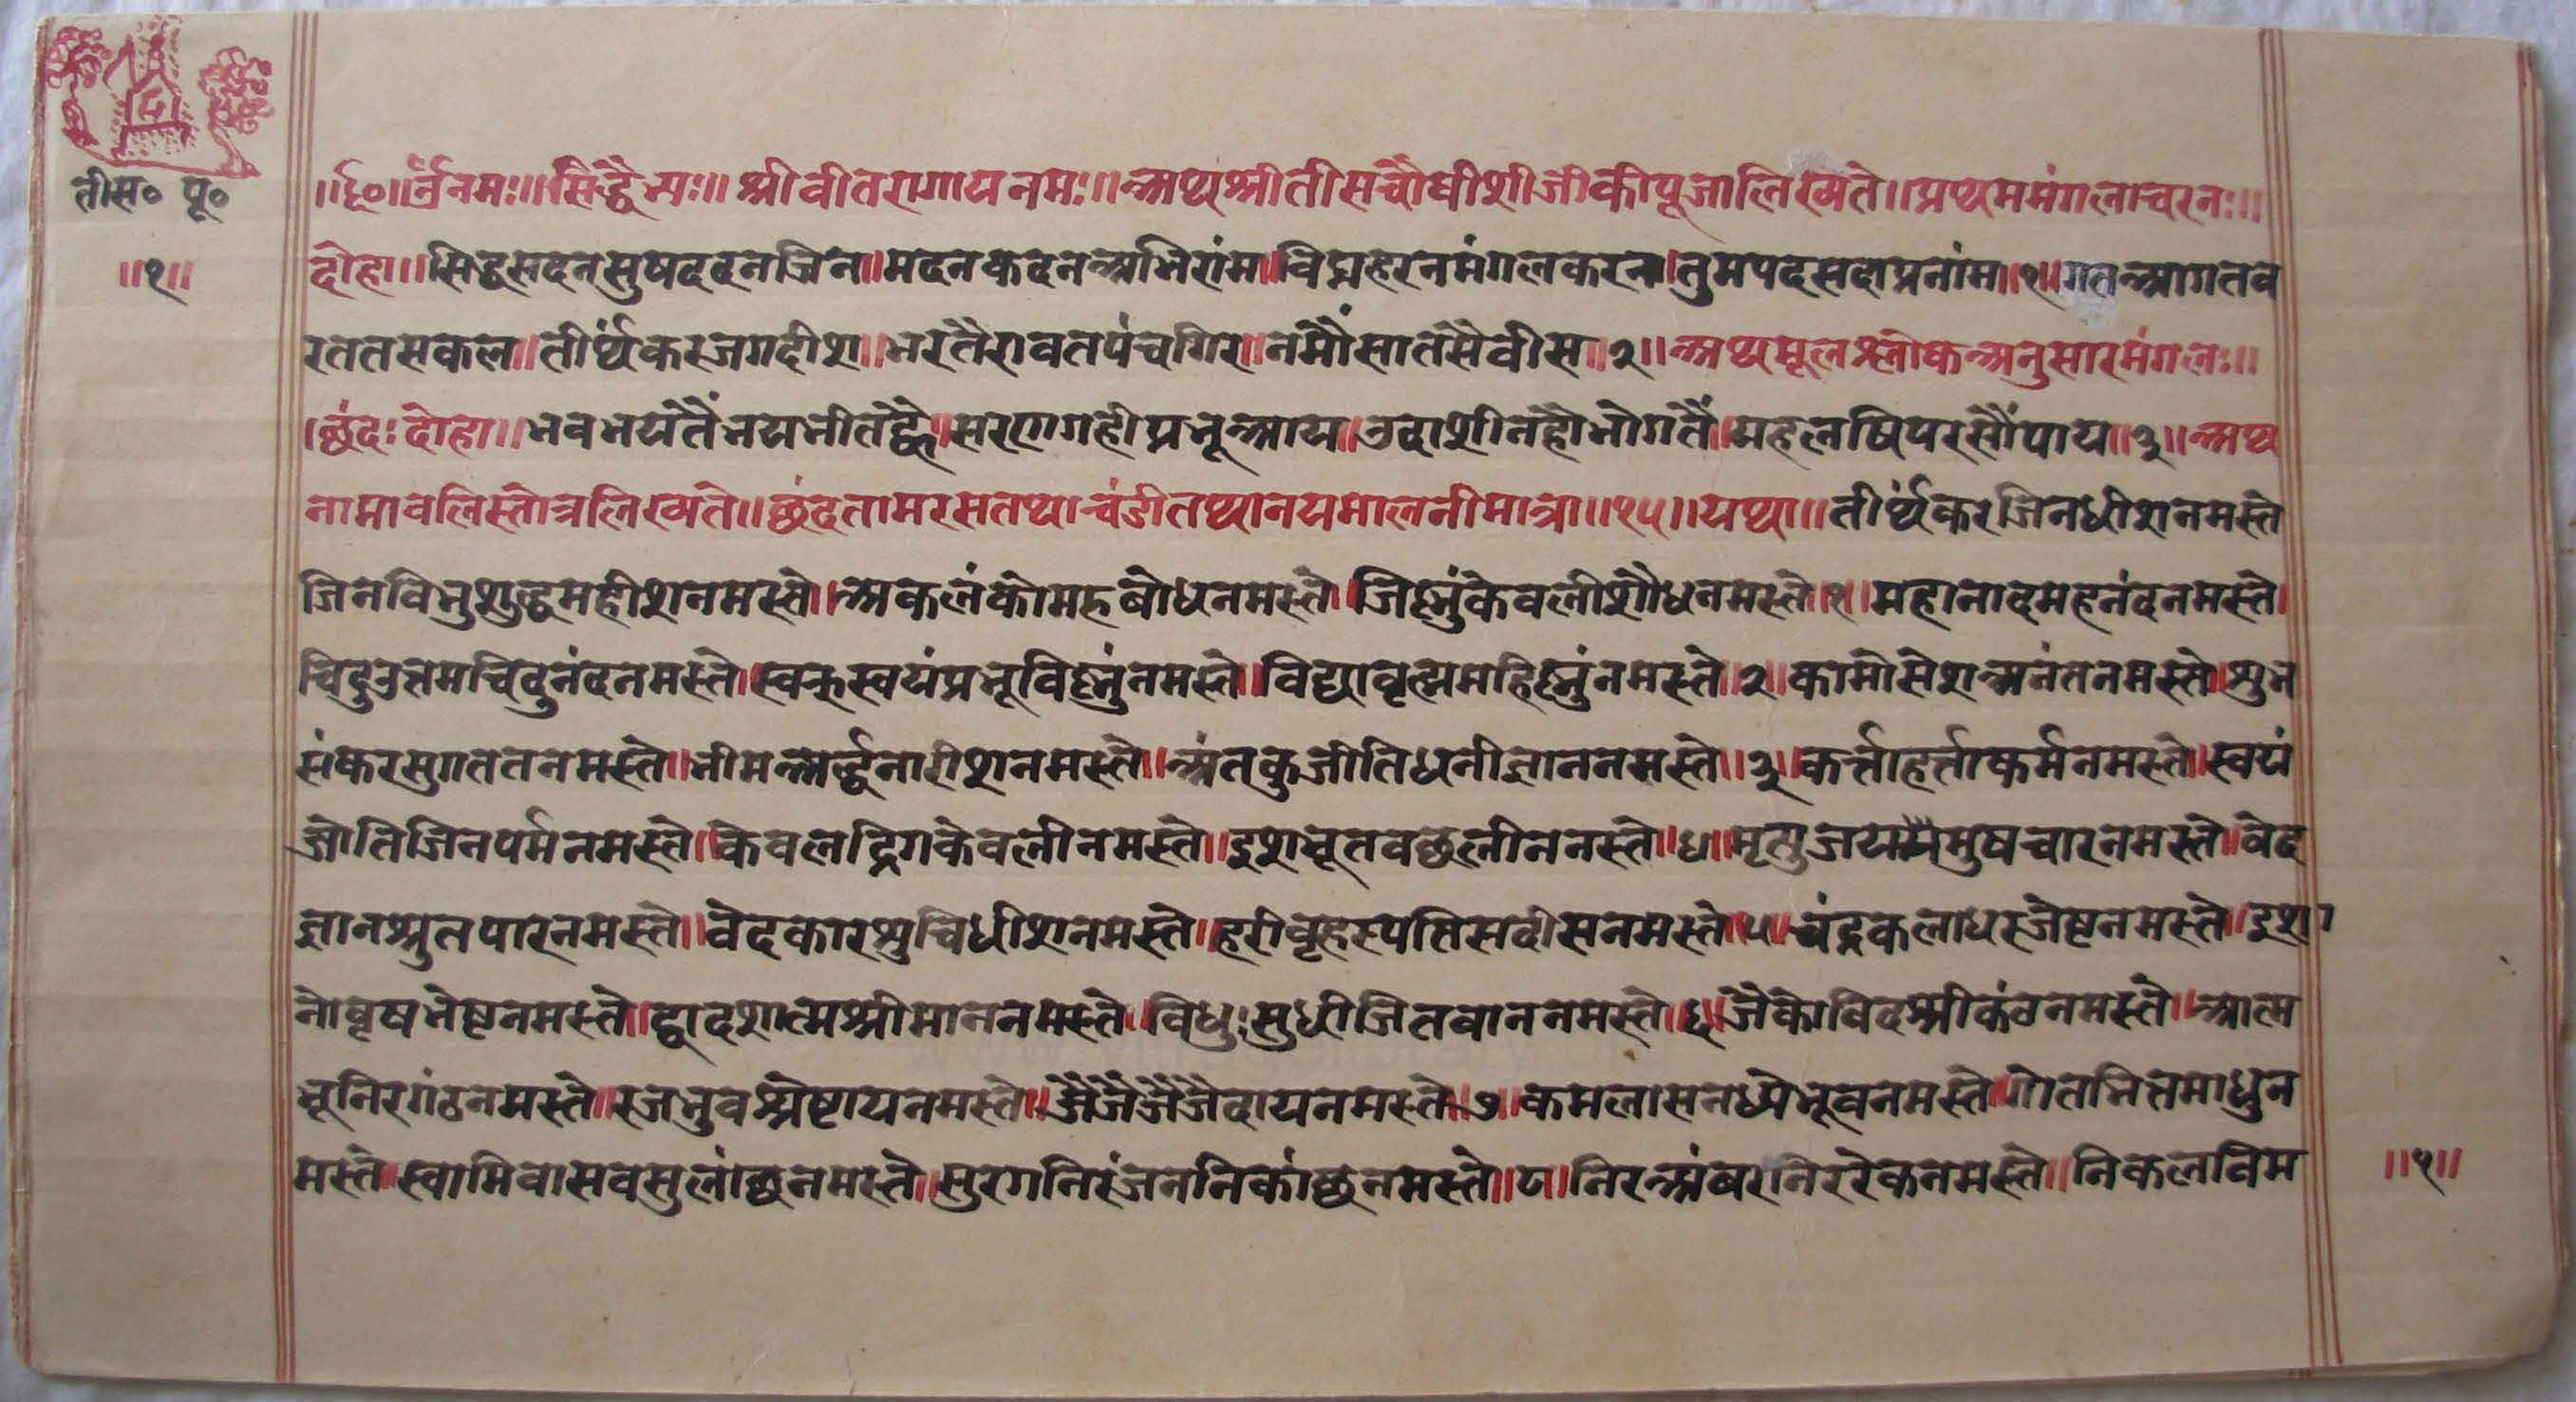 तीस॰ पू॰
॥१॥
॥र्द०॥ ॐनमः॥ सिद्धेभ्यः॥ श्रीवीतरागायनमः॥ अथश्रीतीसचौवीशीजीकीपूजालिख्यते॥ प्रथममंगलाचरनः॥
दोहा॥ सिद्धसदनसुषददनजिन॥ मदनकदनअभिरांम॥ विघ्नहरनमंगलकरन॥ तुमपदसदाप्रनांम॥१॥ गतआगतव
रततसकल॥ तीर्थंकरजगदीश॥ भरतैरावतपंचगिर॥ नमौंसातसैवीस॥२॥ अथमूलश्लोकअनुसारमंगलः॥
।छंदः दोहा॥ भवभयतैंभयभीतह्वै॥ सरणगहीप्रभूआय॥ उदाशीनहोभोगतैं॥ महलषिपरसौंपाय॥३॥ अथ
नामावलिस्तोत्रलिख्यते॥ छंदतामरसतथाचंडीतथानयमालनीमात्रा॥१५॥ यथा॥ तीर्थंकरजिनधीशनमस्ते
जिनविभुशुद्धमहीशनमस्ते॥ अकलंकोमहबोधनमस्ते॥ जिष्णुंकेवलीशौधनमस्ते॥१॥ महानादमहनंदनमस्ते।
चिदुउत्तमचिदुनंदनमस्ते॥ स्वभुस्वयंप्रभूविष्णुंनमस्ते॥ विद्यावृत्ममहिष्णुंनमस्ते॥२॥ कामोसेशअनंतनमस्ते॥ शुभ
संकरसुगततनमस्ते॥ भीमअर्द्धनारीशनमस्ते॥ अंतकुजीतिधनीज्ञाननमस्ते॥३॥ कर्त्ताहर्त्ताकर्मनमस्ते॥ स्वयं
जोतिजिनपर्मनमस्ते॥ केवलद्रिगकेवलीनमस्ते॥ इशभूतवछलीननस्ते॥४॥ मृत्युजय मुषचारनमस्ते॥ वेद
ज्ञानश्रुतपारनमस्ते॥ वेदकारशुचिधीशनमस्ते॥ हरीवृहस्पतिसदीसनमस्ते॥५॥ चंद्रकलाधरजेष्टनमस्ते॥ इशा
नोवृषभेष्टनमस्ते॥ द्वादशात्मश्रीमाननमस्ते॥ विधुःसुधीजितवाननमस्ते॥६॥ जैकोविदश्रीकंठनमस्ते॥ आत्म
भूनिरगंठनमस्ते॥ रजभुवश्रेष्टायनमस्ते॥ जैजैजैजैदायनमस्ते॥७॥ कमलासनध्येभूवनमस्ते॥ गोतमितमाधुन
मस्ते॥ स्वामिवासवसुलांछनमस्ते॥ सुरगनिरंजननिकांछनमस्ते॥८॥ निरअंबरनिररेकनमस्ते॥ निकलविम
॥१॥